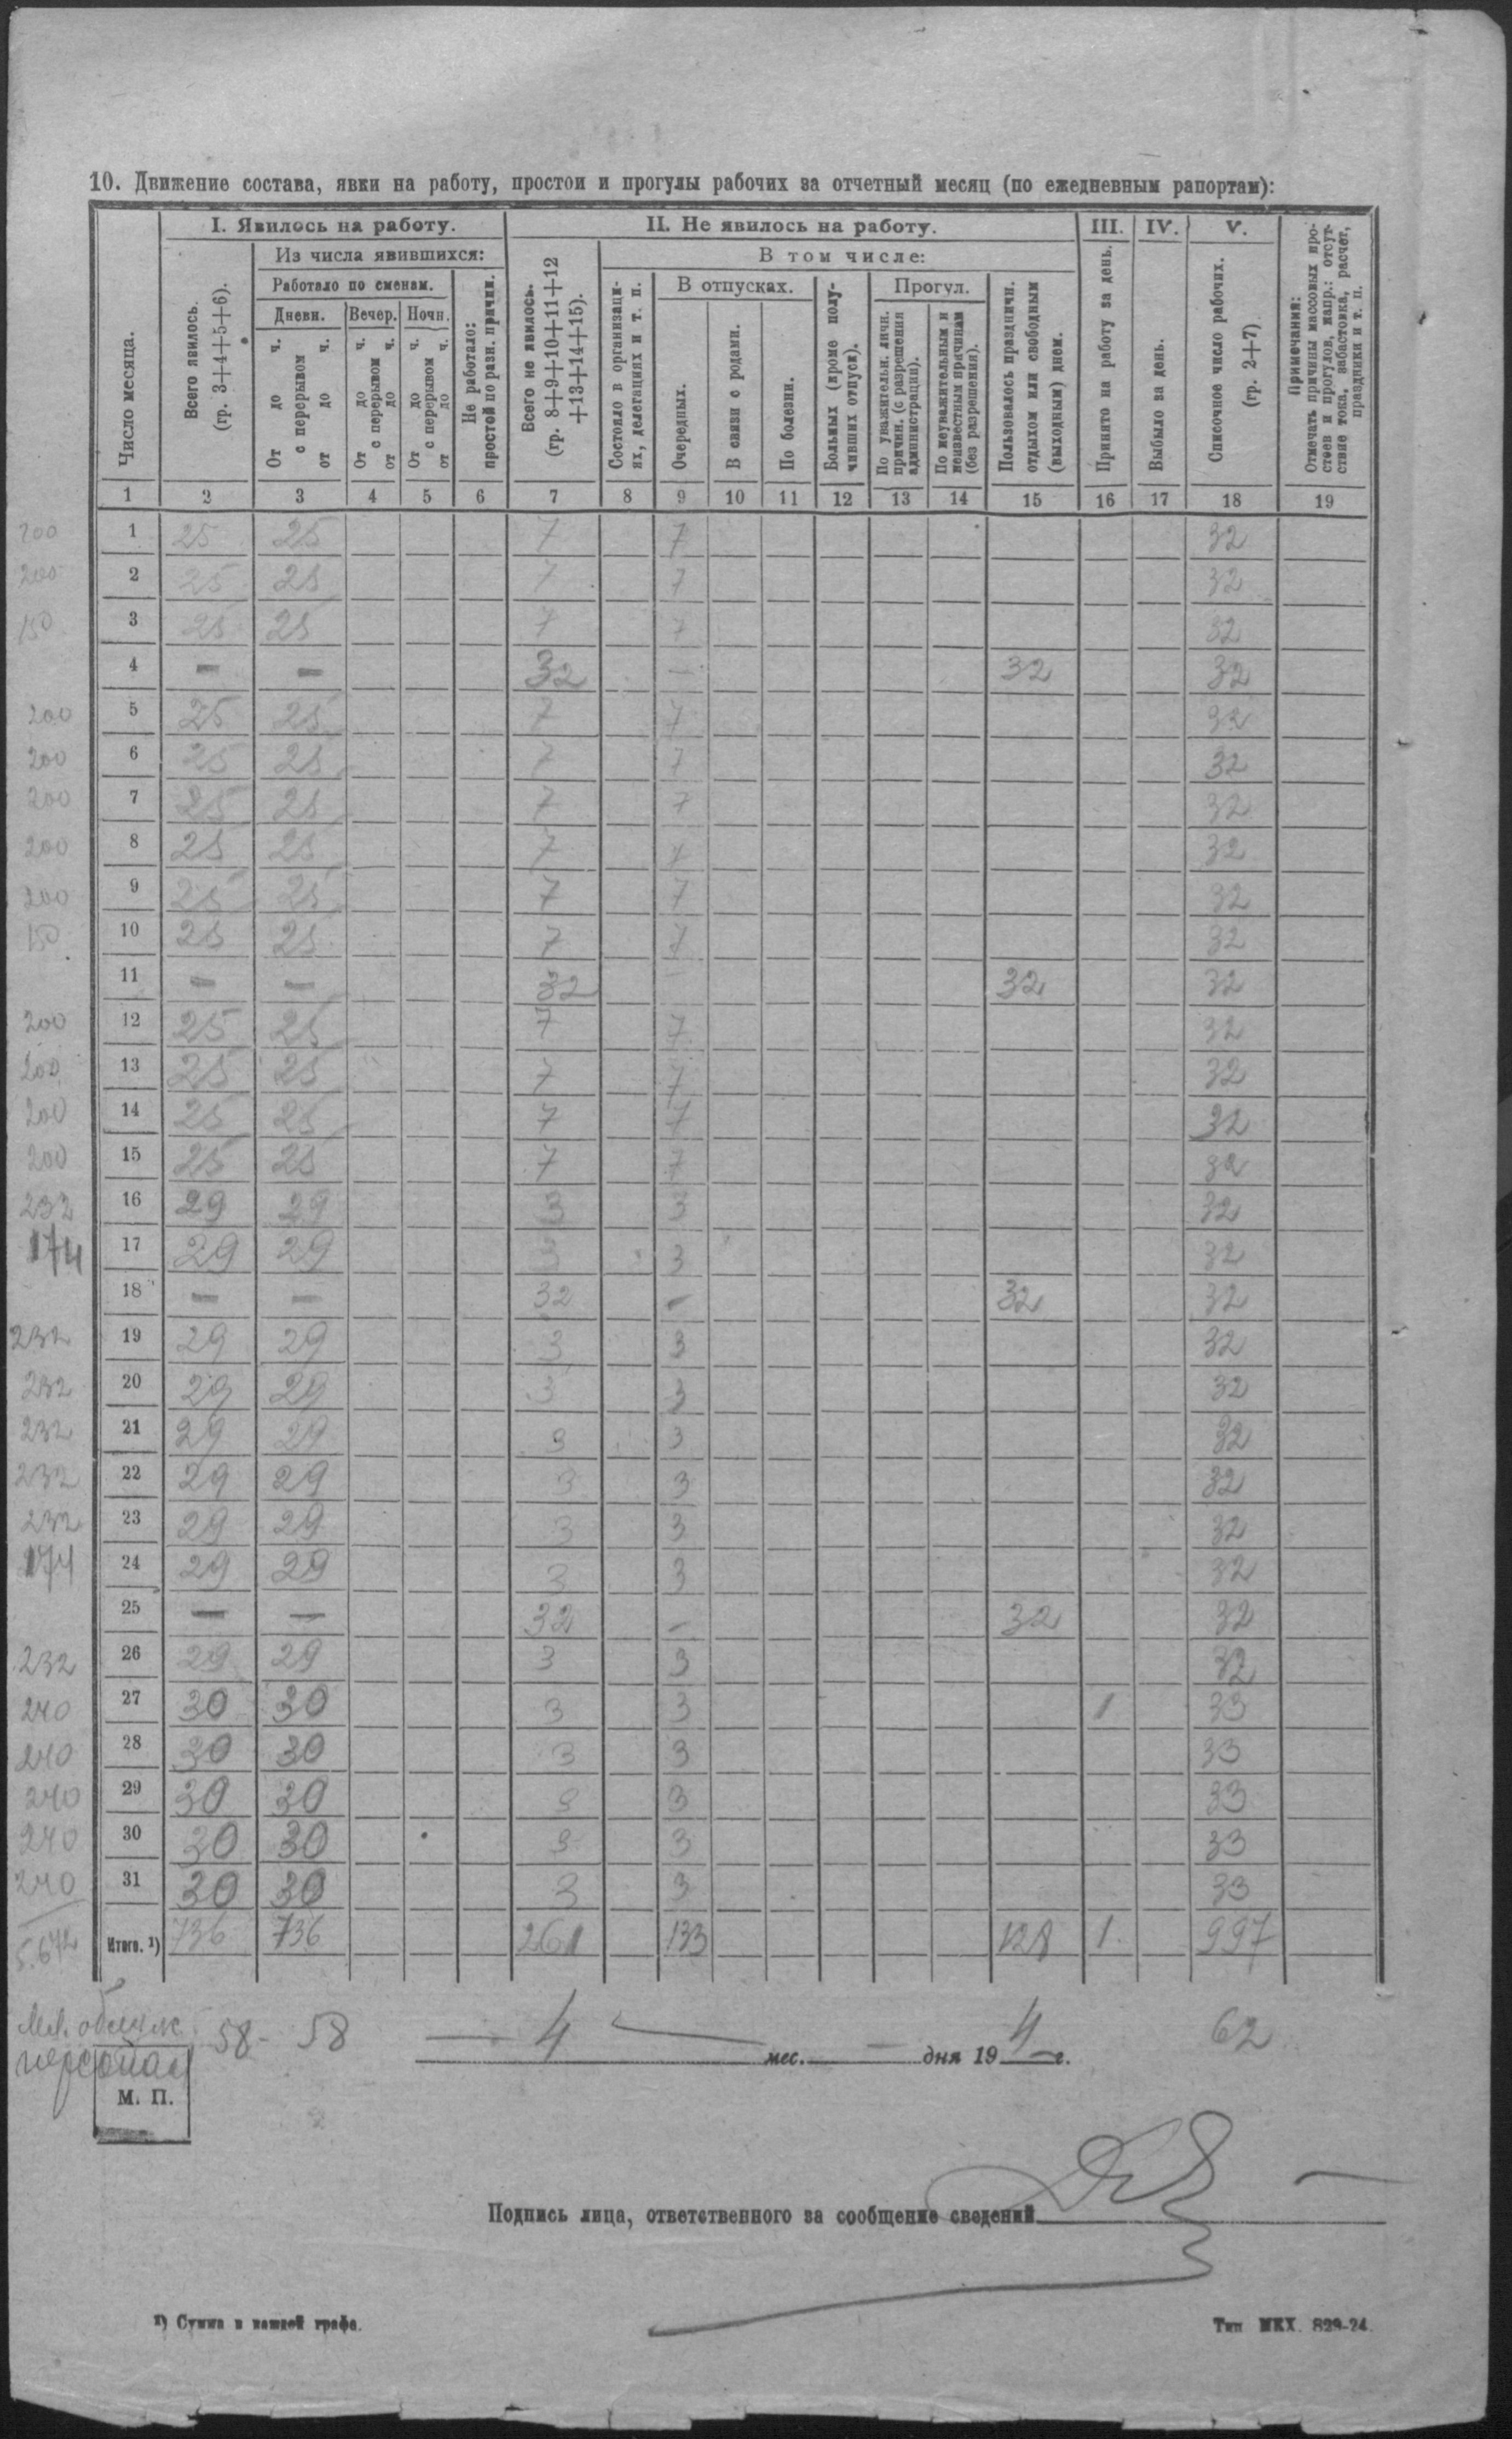 10. Движение состава, явки на работу, простои и прогулы рабочих за отчетный месяц (по ежедневным рапортам):
I. Явилось на работу. II. Не явилось на работу. III. IV. V.
Из числа явившихся: В том числе:
Работало по сменам. В отпусках. Прогул.
Дневн. Вечер. Ночн.
Число месяца.
Всего явилось. (гр. 3+4+5+6).
От до ч. с перерывом от до ч.
От до ч. с перерывом от до ч.
От до ч. с перерывом от до ч.
Не работало: простой по разн. причин.
Всего не явилось. (гр. 8+9+10+11+12+13+14+15).
Состояло в организациях, делегациях и т. п.
Очередных.
В связи с родами.
По болезни.
Больных (кроме получивших отпуск).
По уважительн. личн. причин. (с разрешения администрации).
По неуважительным и неизвестным причинам (без разрешения).
Пользовалось праздничн. отдыхом или свободным (выходным) днем.
Принято на работу за день.
Выбыло за день.
Списочное число рабочих. (гр. 2+7)
Примечания: Отмечать причины массовых простоев и прогулов, напр.: отсутствие тока, забастовка, расчет, праздники и т. п.
1 2 3 4 5 6 7 8 9 10 11 12 13 14 15 16 17 18 19
200 1 25 25 7 7 32
200 2 25 25 7 7 32
150 3 25 25 7 7 32
4 — — 32 — 32 32
200 5 25 25 7 7 32
200 6 25 25 7 7 32
200 7 25 25 7 7 32
200 8 25 25 7 7 32
200 9 25 25 7 7 32
150 10 25 25 7 7 32
11 — — 32 32 32
200 12 25 25 7 7 32
200 13 25 25 7 7 32
200 14 25 25 7 7 32
200 15 25 25 7 7 32
232 16 29 29 3 3 32
174 17 29 29 3 3 32
18 — — 32 — 32 32
232 19 29 29 3 3 32
232 20 29 29 3 3 32
232 21 29 29 3 3 32
232 22 29 29 3 3 32
232 23 29 29 3 3 32
174 24 29 29 3 3 32
25 — — 32 — 32 32
232 26 29 29 3 3 32
240 27 30 30 3 3 1 33
240 28 30 30 3 3 33
240 29 30 30 3 3 33
240 30 30 30 3 3 33
240 31 30 30 3 3 33
5.672 Итого. ¹) 736 736 261 133 128 1 997
Мл. обслуж. персонал 58- 58 — 4 — мес. — дня 19 4 г. 62
М. П.
Подпись лица, ответственного за сообщение сведений
¹) Сумма в каждой графе.
Тип МКХ. 829-24.